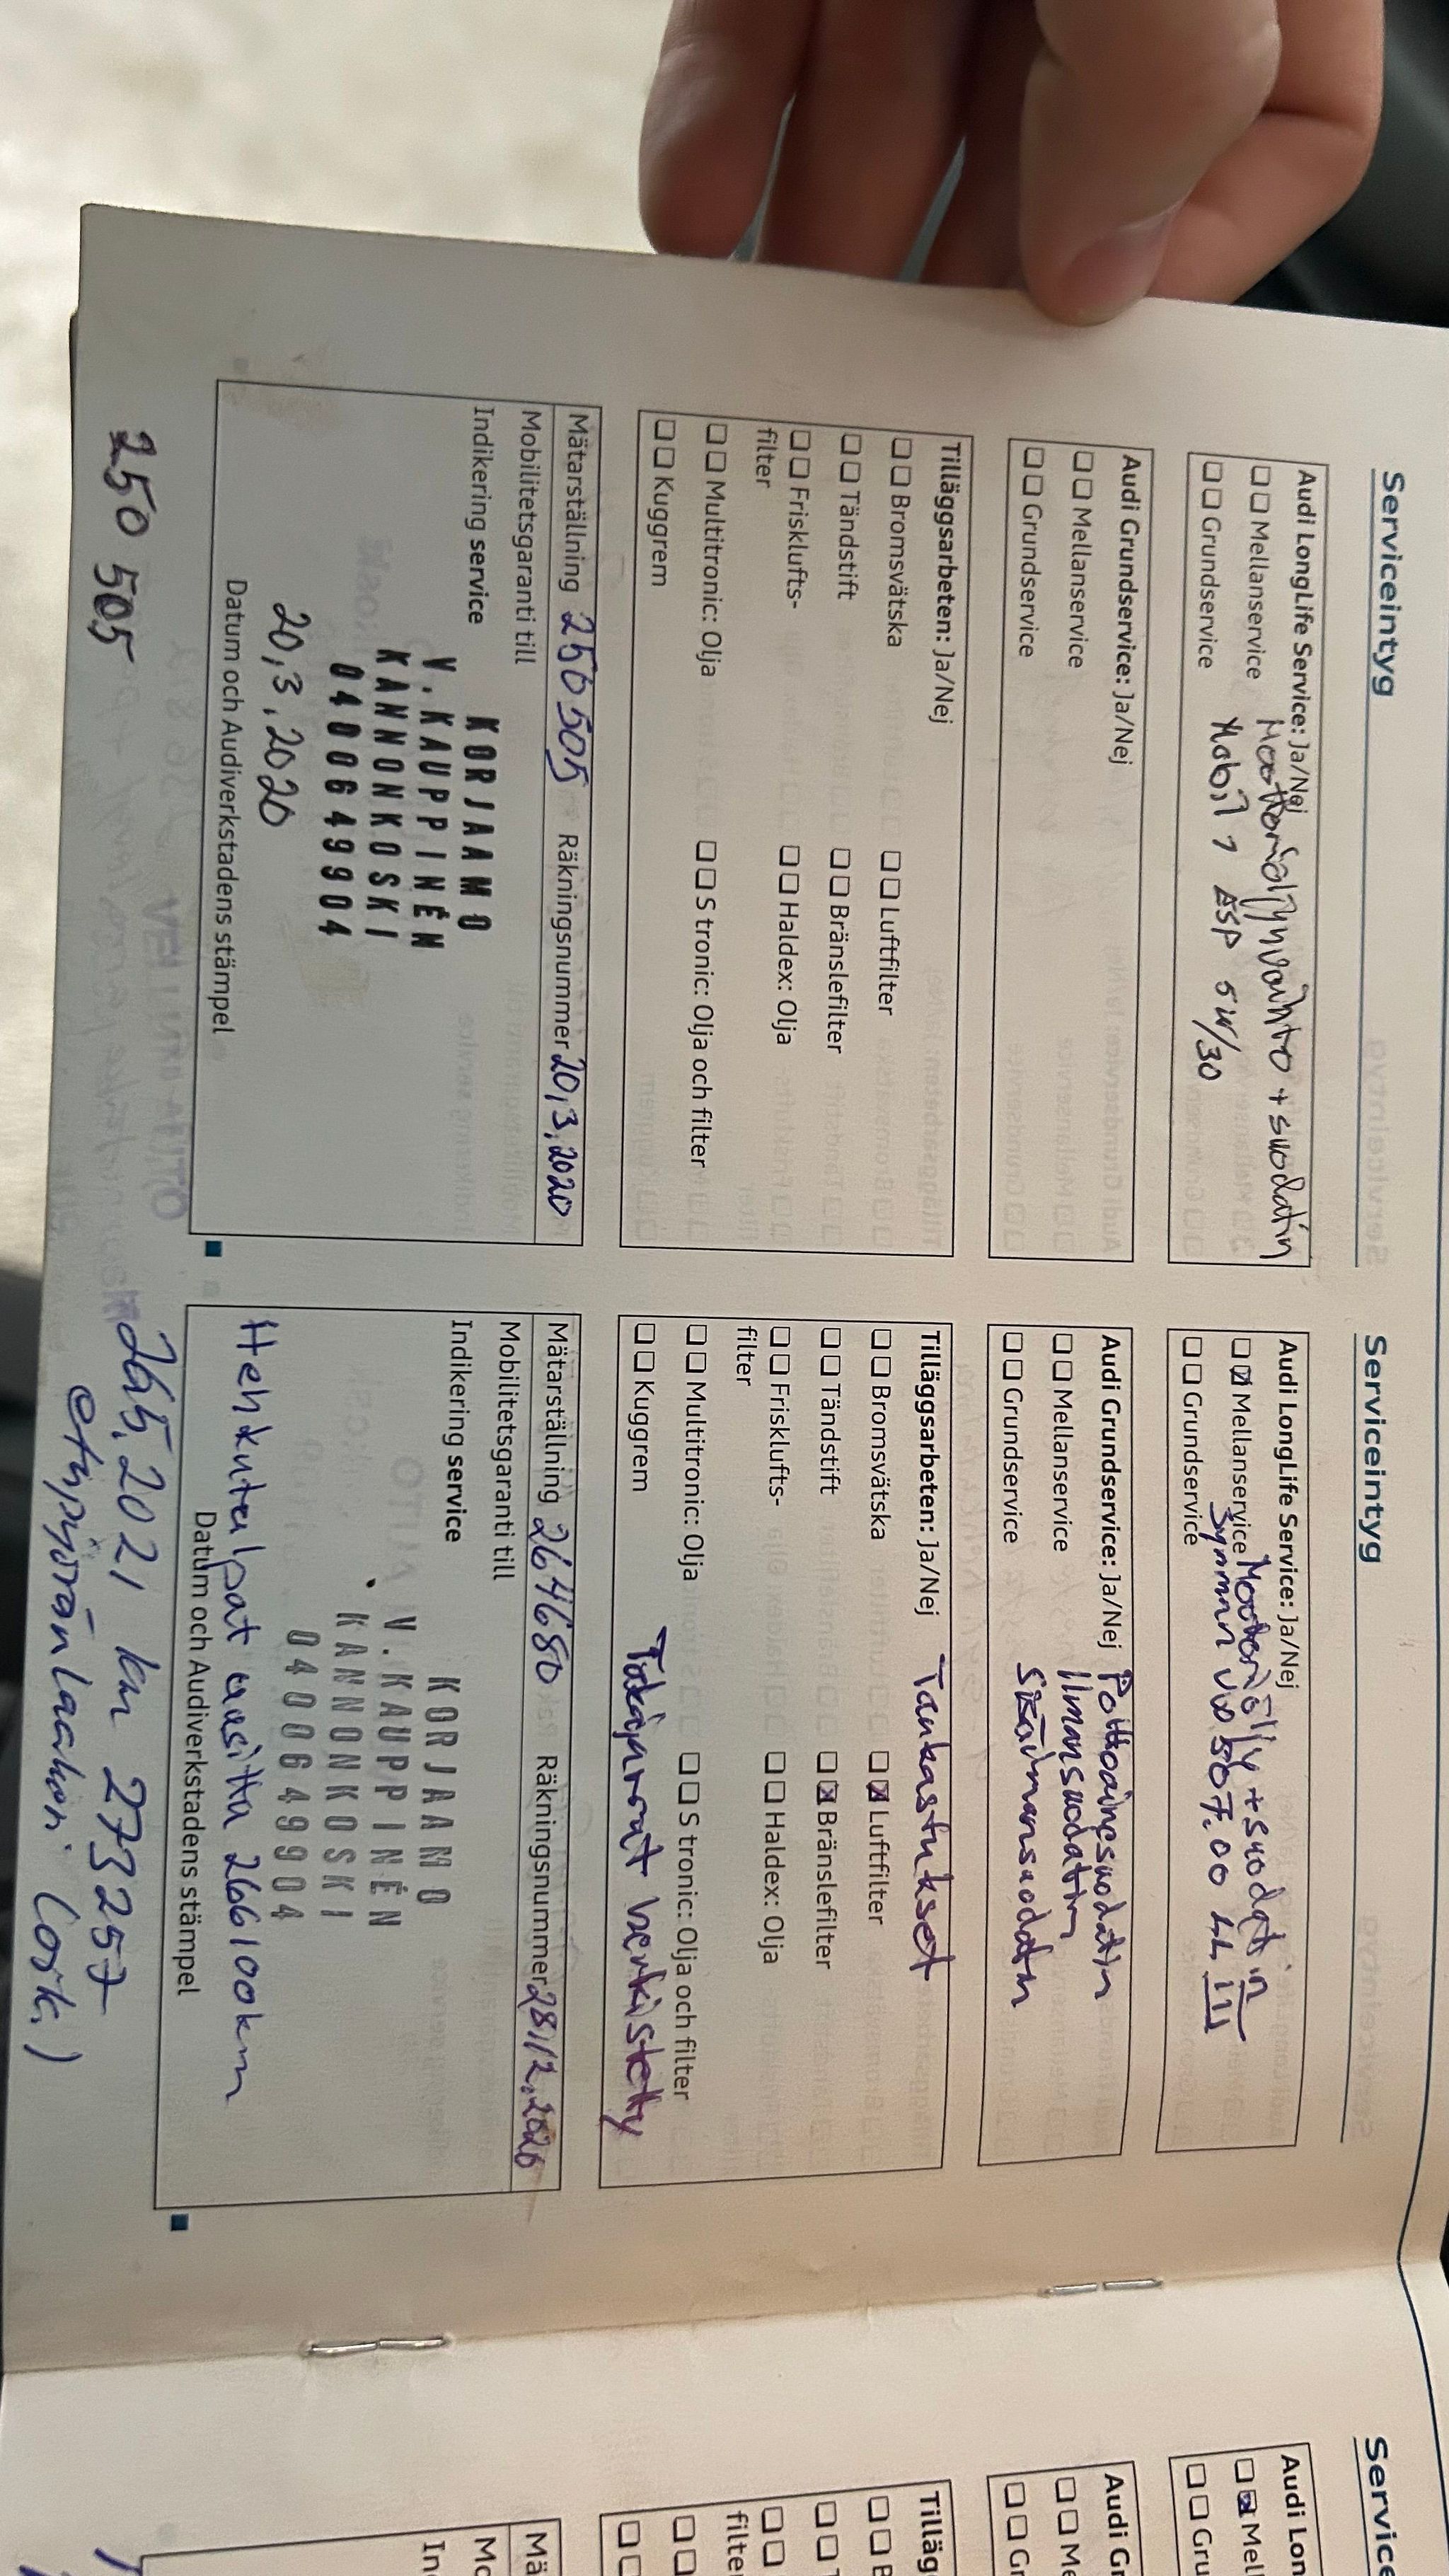 Serviceintyg
Audi LongLife Service: Ja/Nej
Mellanservice Moottoriöljynvaihto + suodatin
Grundservice Mobil 1 ESP 5W/30
Audi Grundservice: Ja/Nej
Mellanservice
Grundservice
Tilläggsarbeten: Ja/Nej
Bromsvätska Luftfilter
Tändstift Bränslefilter
Frisklufts- Haldex: Olja
filter
Multitronic: Olja S tronic: Olja och filter
Kuggrem
Mätarställning 250 505 Räkningsnummer 20,3,2020
Mobilitetsgaranti till
Indikering service
KORJAAMO
V.KAUPPINEN
KANNONKOSKI
0400649904
20,3,2020
Datum och Audiverkstadens stämpel
250 505
Serviceintyg
Audi LongLife Service: Ja/Nej
Mellanservice Moottoriöljy + suodatin
Grundservice 507.00
Audi Grundservice: Ja/Nej Polttoainesuodatin
Mellanservice Ilmansuodatin
Grundservice Sisäilmansuodatin
Tilläggsarbeten: Ja/Nej Taukastukset
Bromsvätska Luftfilter
Tändstift Bränslefilter
Frisklufts- Haldex: Olja
filter
Multitronic: Olja S tronic: Olja och filter
Kuggrem Takajarrut herkistetty
Mätarställning 264680 Räkningsnummer 28,12,2020
Mobilitetsgaranti till
Indikering service
KORJAAMO
V.KAUPPINEN
KANNONKOSKI
0400649904
Hehkutulpat uusittu 266100km
Datum och Audiverkstadens stämpel
2021 km 273257
etupyöränlaakeri
Service
Audi Lon
Mell
Gru
Audi Gr
Me
Gr
Tilläg
B
T
filte
Mä
Mo
In